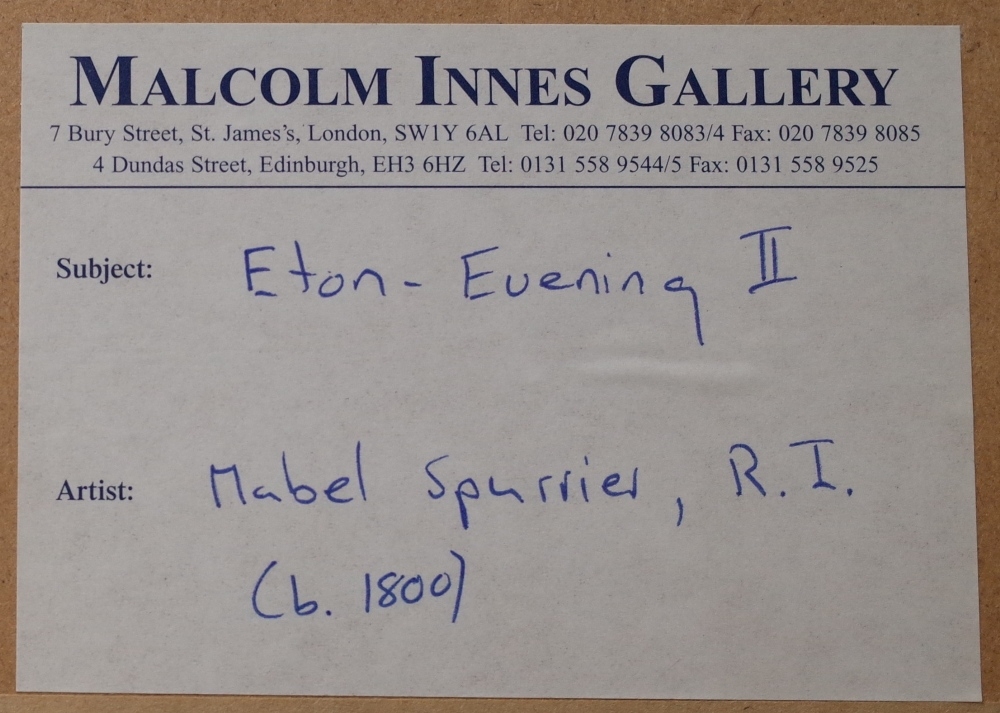 MALCOLM INNES GALLERY
7 Bury Street, St. James's, London, SW1Y 6AL Tel: 020 7839 8083/4 Fax: 020 7839 8085
4 Dundas Street, Edinburgh, EH3 6HZ Tel: 0131 558 9544/5 Fax: 0131 558 9525
Subject: Eton - Evening II
Artist: Mabel Spurrier, R.I.
(b. 1800)